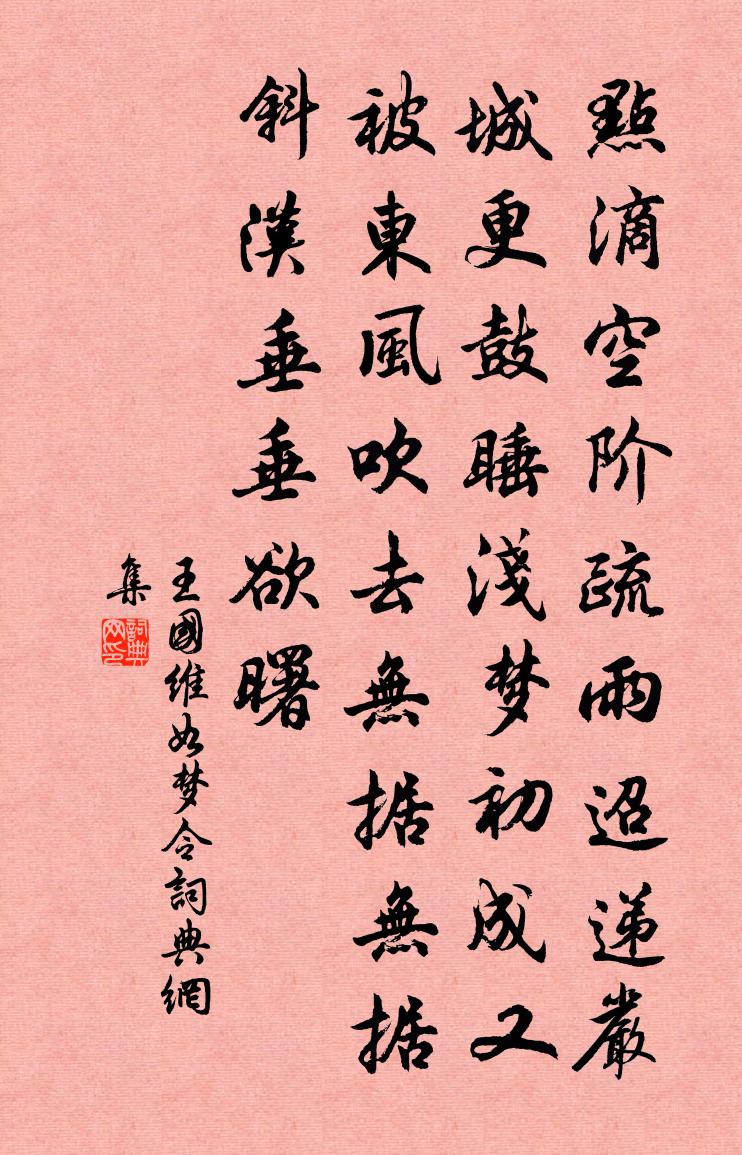 點滴空阶疏雨迢递嚴
城更鼓睡淺梦初成又
被東風吹去無据無据
斜漢垂垂欲曙
王國維如梦令詞典網
集
詞典网印